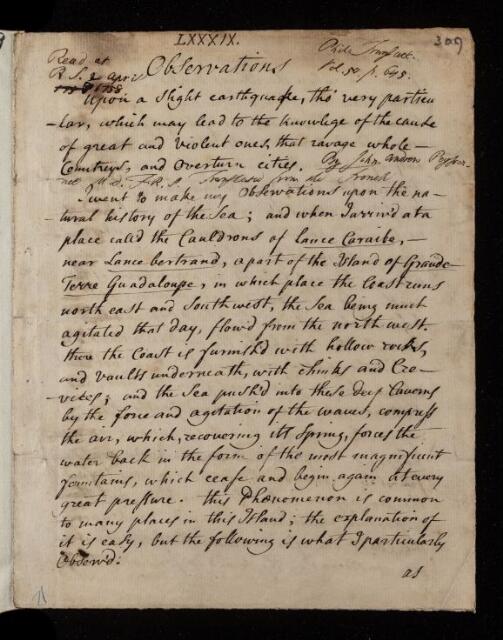 LXXXIX.
309
Read at
R S. 2 april
1758
Phil. Transact.
Vol. 50 p. 645.
Observations
Upon a slight earthquake, tho' very particu
-lar, which may lead to the knowlege of the cause
of great and violent ones, that ravage whole-
Countrys, and overturn cities. By John Andrew Peysson-
nel M.D. F.R.S. Translated from the French
I went to make my Observations upon the na-
tural history of the Sea; and when I arriv'd at a
place calld the Cauldrons of Lance Caraibe, -
near Lance bertrand, a part of the Island of Grande
Terre Guadaloupe, in which place the Coast runs
north east and South west, the Sea being much
agitated that day, flow'd from the north west.
there the Coast is furnish'd with hollow rocks,
and vaults underneath, with chinks and Cre-
-vices; and the Sea push'd into these deep Caverns
by the force and agitation of the waves, compress
the air, which, recovering its Spring, forces the
water back in the form of the most magnificent
fountains, which cease and begin again at every
great pressure. this Phænomenon is common
to many places in this Island; the explanation of
it is easy, but the following is what I particularly
Observ'd.
as